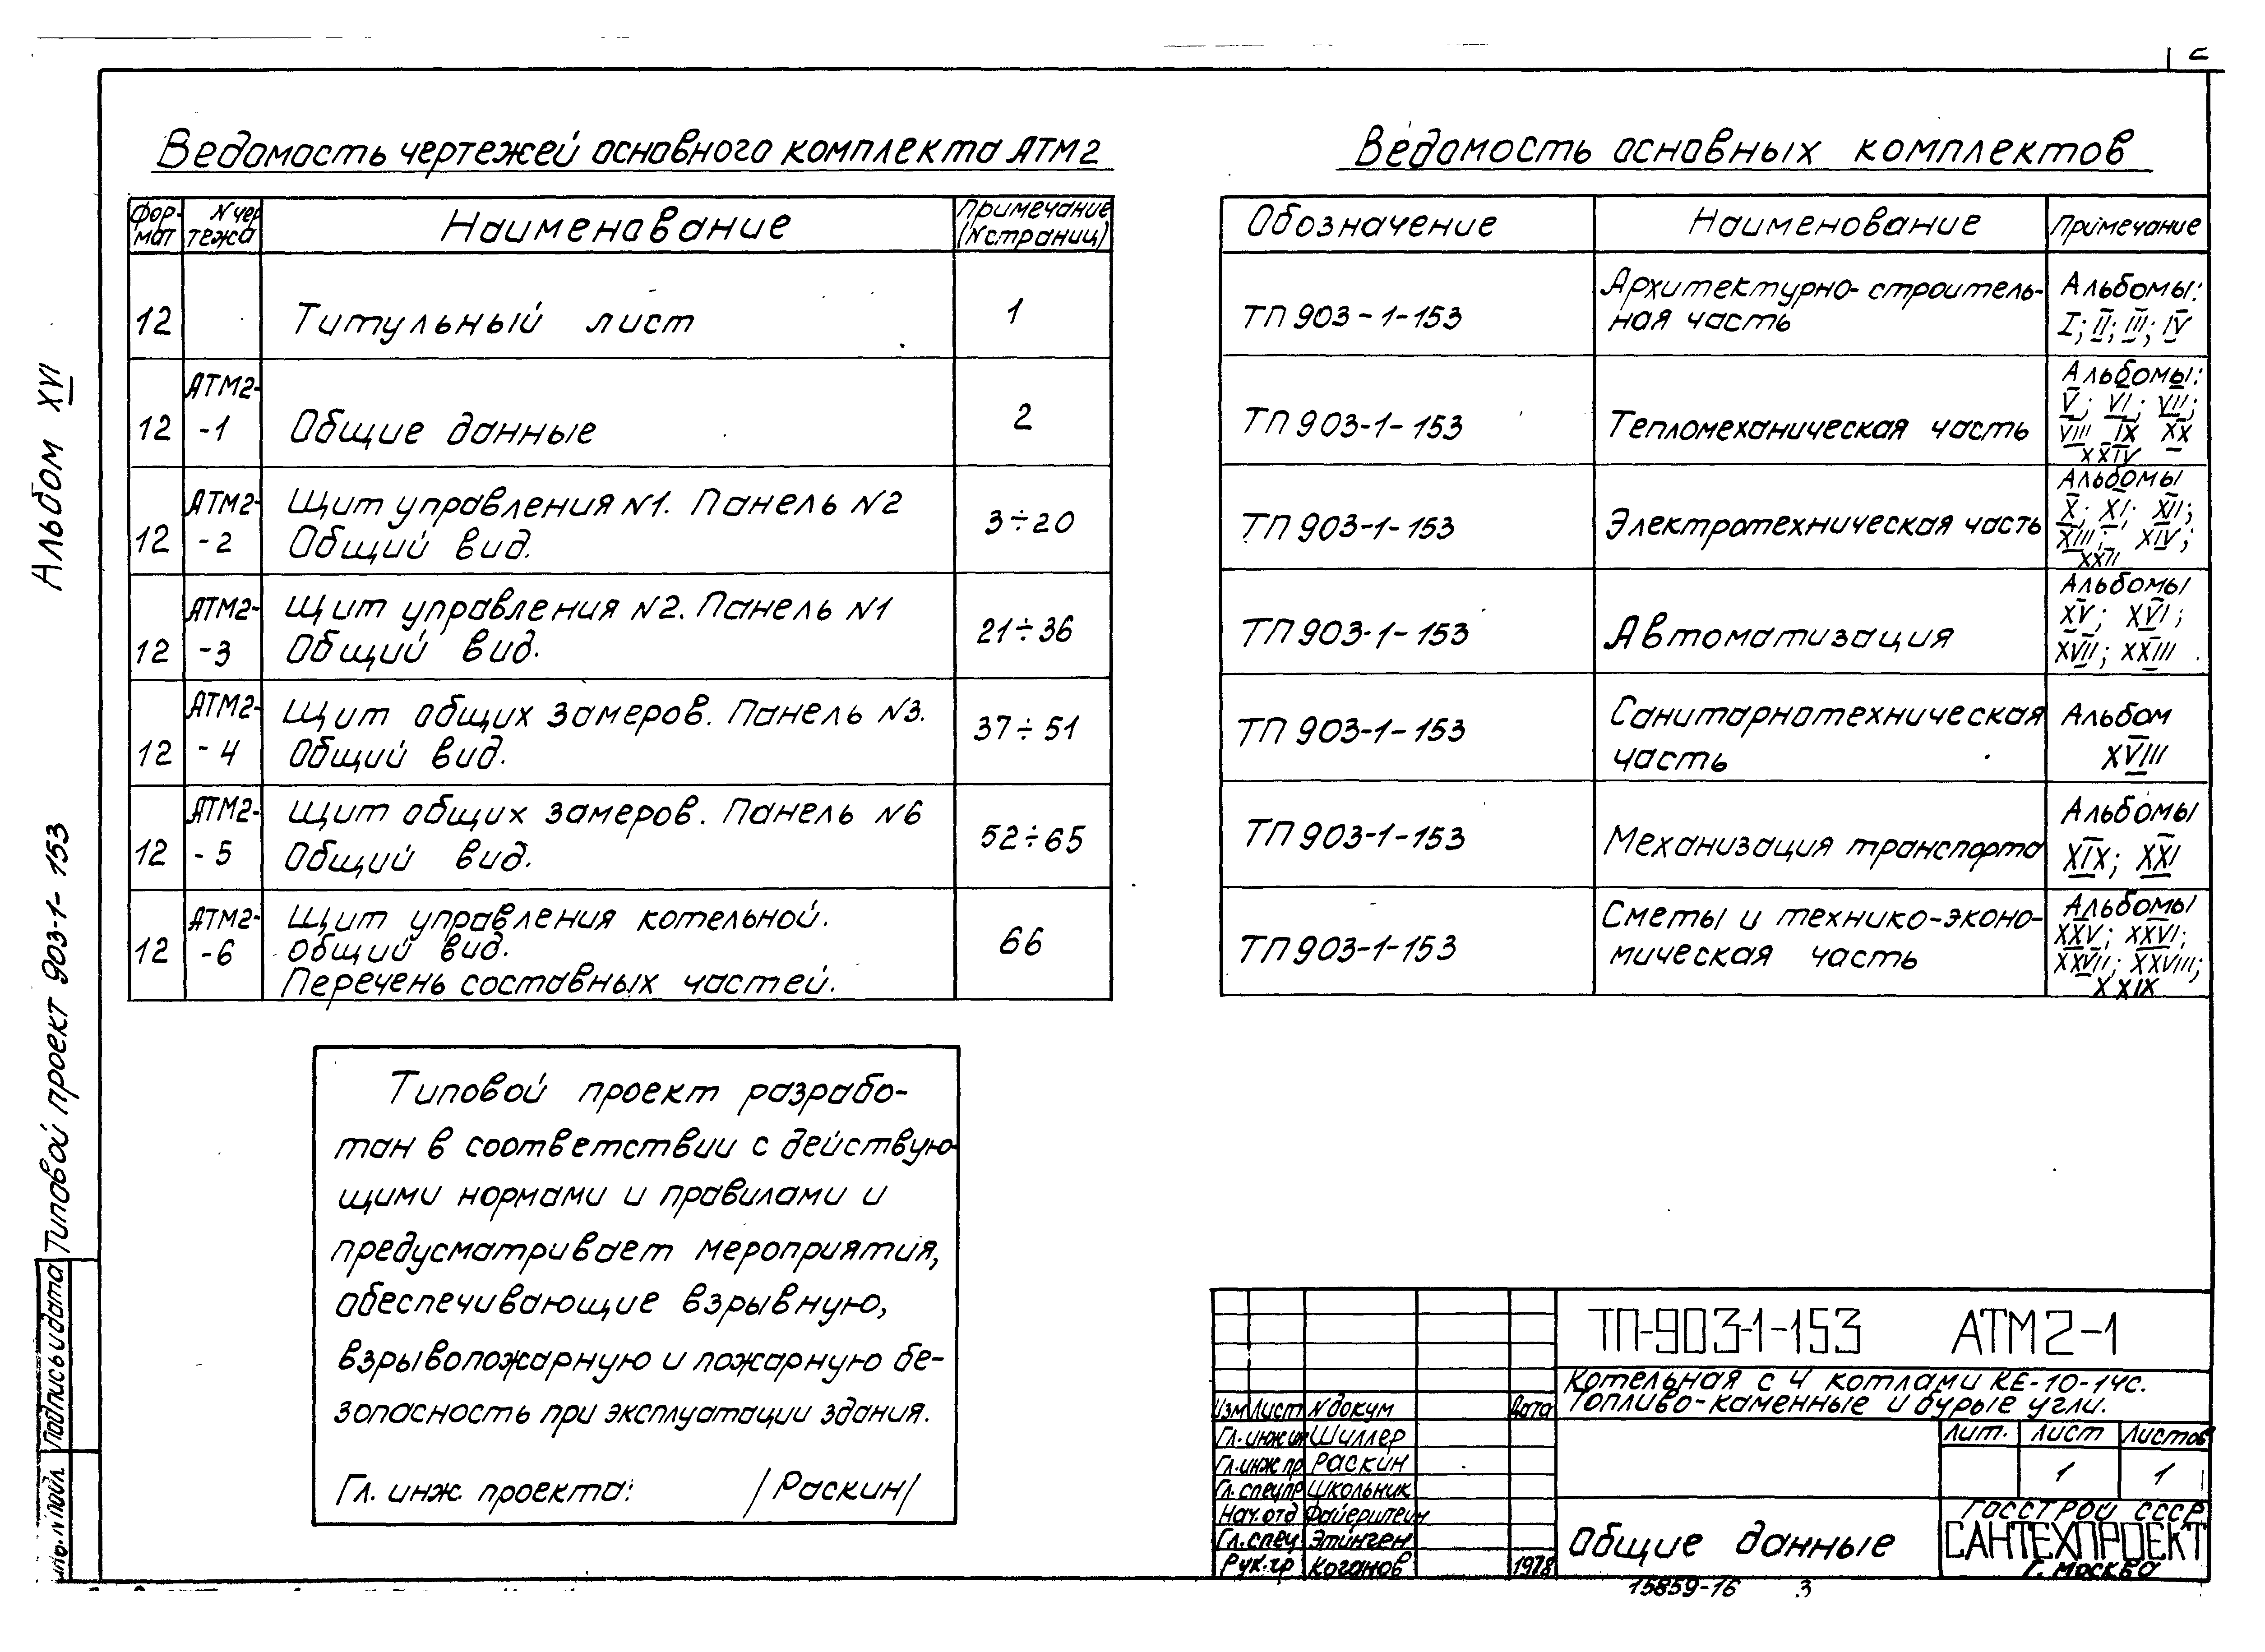 2
Альбом XVI
Типовой проект 903-1-153
Подпись и дата
Ведомость чертежей основного комплекта АТМ2
Фор-мат
N чер тежа
Наименование
Примечание (N страниц)
12 Титульный лист 1
АТМ2-
12 -1 Общие данные 2
АТМ2- Щит управления N1. Панель N2
12 -2 Общий вид. 3÷20
АТМ2- Щит управления N2. Панель N1
12 -3 Общий вид. 21÷36
АТМ2- Щит общих замеров. Панель N3.
12 -4 Общий вид. 37÷51
АТМ2- Щит общих замеров. Панель N6
12 -5 Общий вид. 52÷65
АТМ2- Щит управления котельной.
12 -6 Общий вид. 66
Перечень составных частей.
Ведомость основных комплектов
Обозначение Наименование Примечание
Архитектурно-строитель- Альбомы:
ТП 903-1-153 ная часть I; II; III; IV
Альбомы:
V; VI; VII;
ТП 903-1-153 Тепломеханическая часть VIII IX XX
XXIV
Альбомы
X; XI; XII;
ТП 903-1-153 Электротехническая часть XIII; XIV;
XXII
Альбомы
XV; XVI;
ТП 903-1-153 Автоматизация
XVII; XXIII
Санитарнотехническая Альбом
ТП 903-1-153 часть XVIII
Альбомы
ТП 903-1-153 Механизация транспорта XIX; XXI
Сметы и технико-эконо- Альбомы
XXV; XXVI;
ТП 903-1-153 мическая часть XXVII; XXVIII;
XXIX
Типовой проект разрабо-
тан в соответствии с действую-
щими нормами и правилами и
предусматривает мероприятия,
обеспечивающие взрывную,
взрывопожарную и пожарную бе-
зопасность при эксплуатации здания.
Гл. инж. проекта: /Раскин/
ТП-903-1-153 АТМ2-1
Котельная с 4 котлами КЕ-10-14с.
Топливо-каменные и бурые угли.
Изм Лист N докум Дата
Гл. инж ин Шиллер
Гл. инж пр Раскин
Гл. спец пр Школьник
Нач. отд Файерштейн
Гл. спец Этинген
Рук. гр Коганов 1978
Лит. Лист Листов
1 1
Общие данные
ГОССТРОЙ СССР
САНТЕХПРОЕКТ
г. Москва
15859-16 3